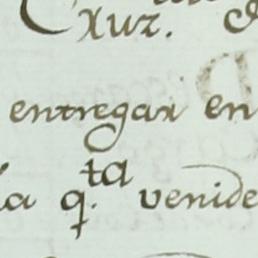 Cruz.
entregar en
q.ta venide